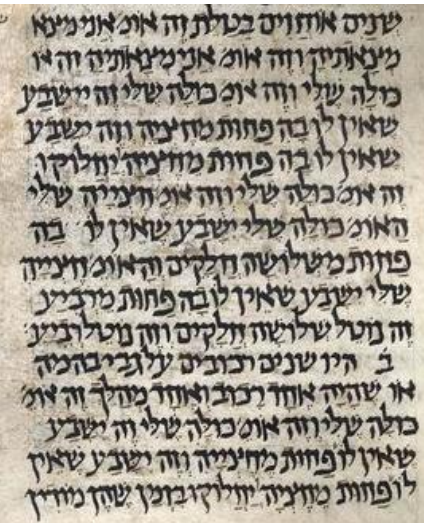 שנים אוחזים בטלת זה אומ' אני מצא
מצאתיה וזה אומ' אני מצאתיה זה או
כולה שלי וזה אומ' כולה שלי זה יישבע
שאין לו בה פחות מחציה וזה ישבע
שאין לו בה פחות מחציה יחלוקו
זה אומ' כולה שלי וזה אומ' חצייה שלי
האומ' כולה שלי ישבע שאין לו בה
פחות משלושה חלקים והאומ' חצייה
שלי ישבע שאין לו בה פחות מרביע
זה נוטל שלושה חלקים וזה נוטל רביע
ב היו שנים רכובים על גבי בהמה
או שהיה אחד רכוב ואחד מהלך זה אומ'
כולה שלי וזה אומ' כולה שלי זה ישבע
שאין לו פחות מחצייה וזה ישבע שאין
לו פחות מחציה יחלוקו בזמן שהן מודין